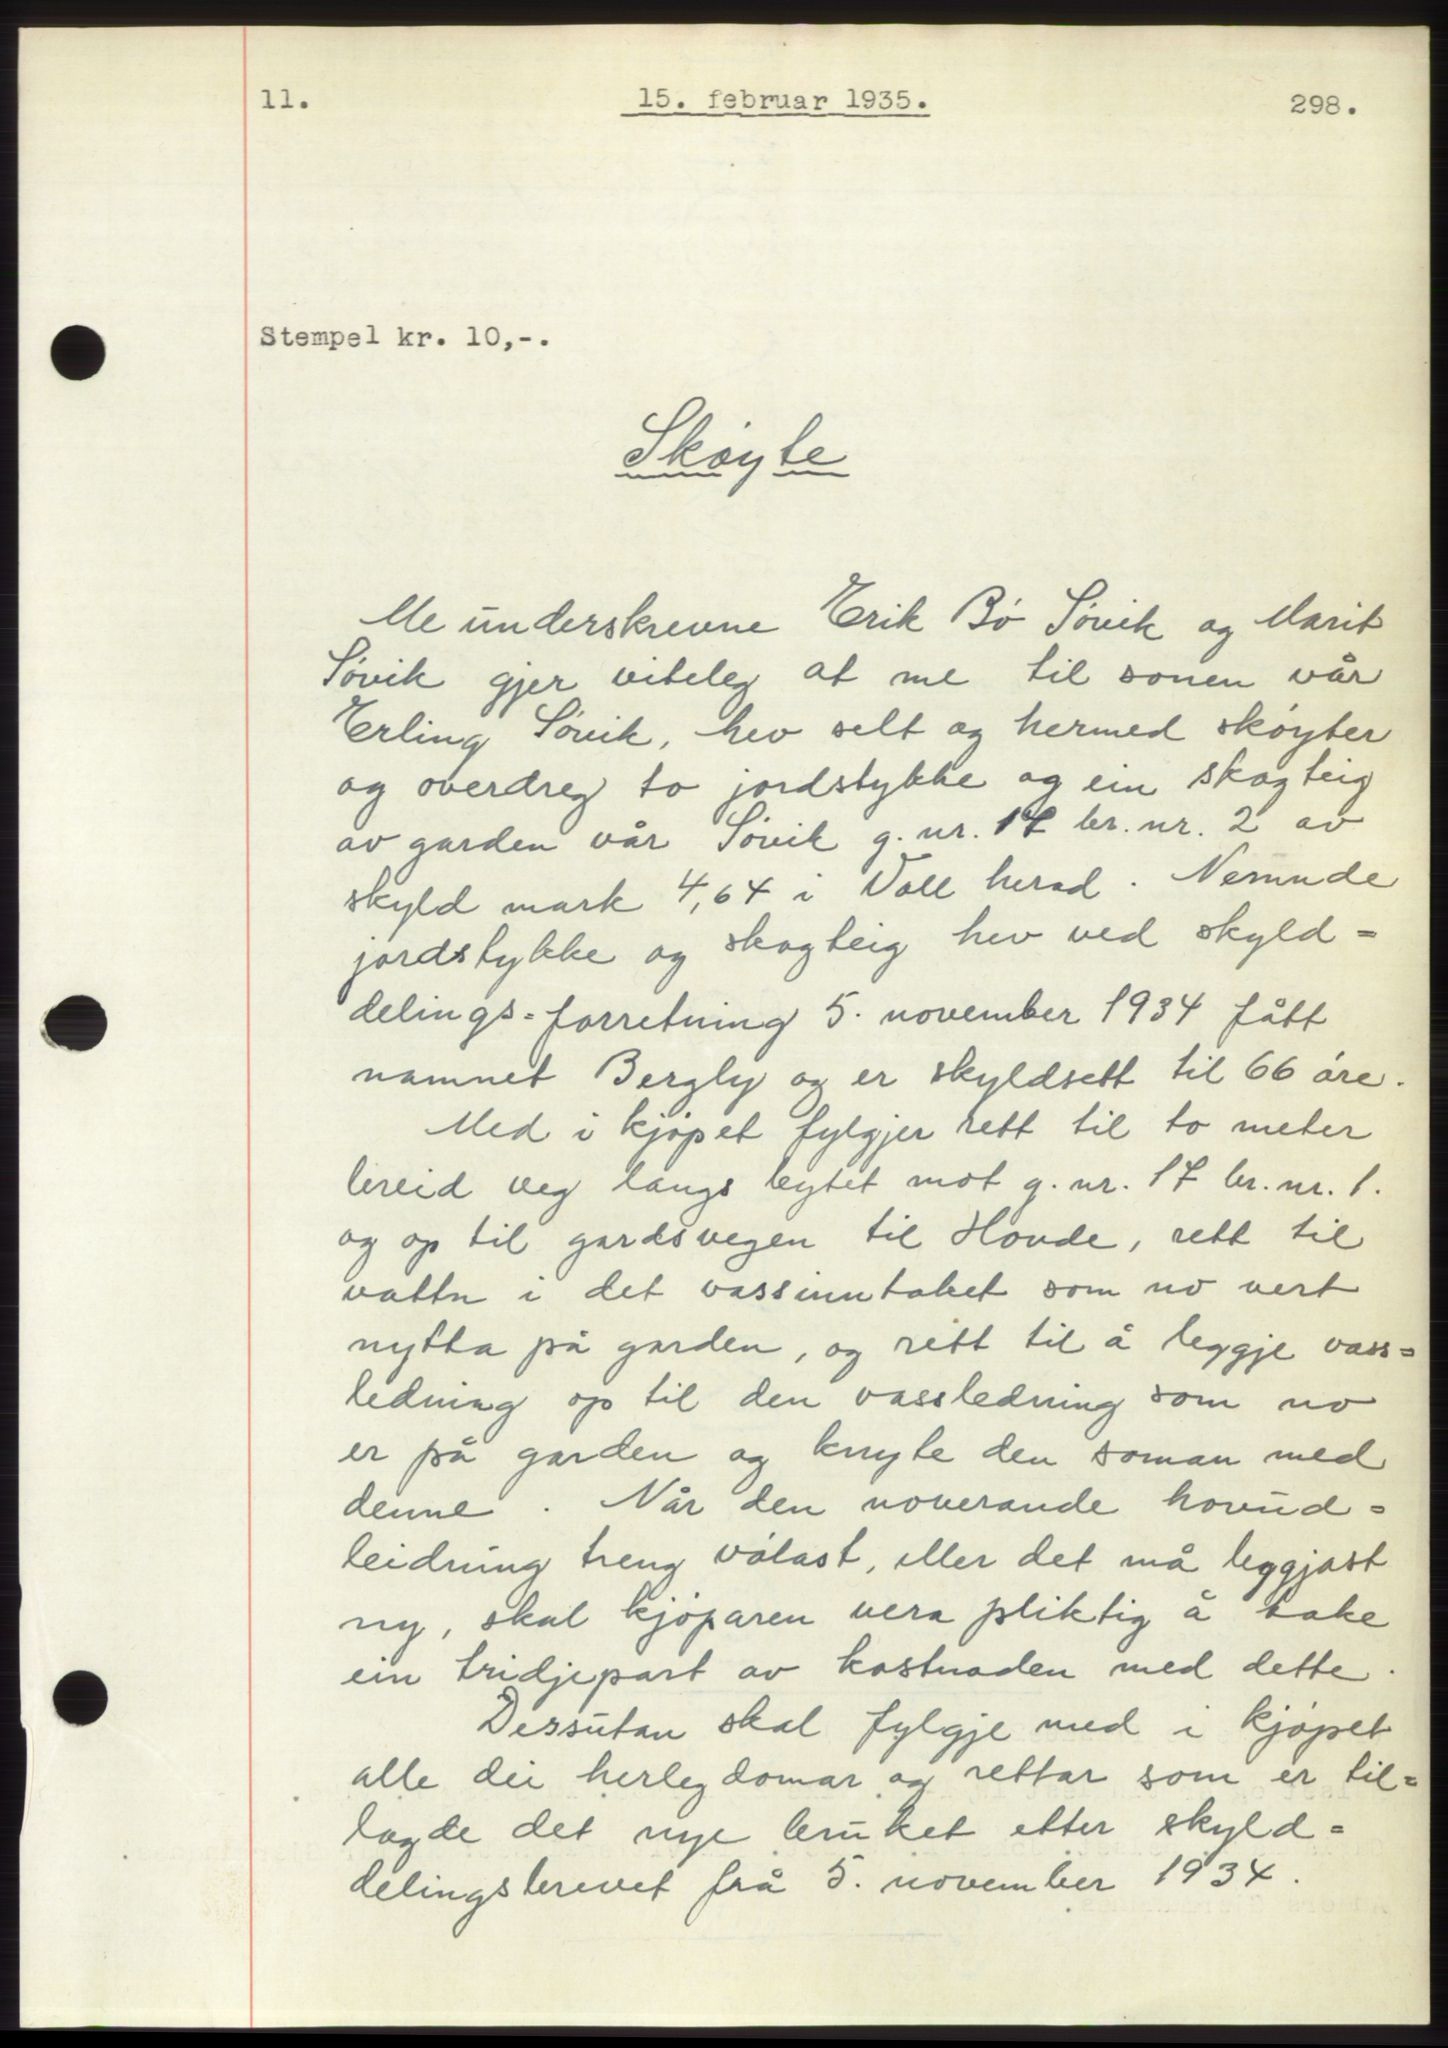 11.
15. februar 1935.
298.
Stempel kr. 10,-.
Skøyte
Me underskrevne Erik Bø Søvik og Marit
Søvik gjer viteleg at me til sonen vår
Erling Søvik, hev selt og hermed skøyter
og overdreg to jordstykke og ein skogteig
av garden vår Søvik g. nr. 17 br. nr. 2 av
skyld mark 4,64 i Voll herad. Nemnde
jordstykke og skogteig hev ved skyld=
delings=forretning 5. november 1934 fått
namnet Bergly og er skyldsett til 66 øre.
Med i kjøpet fylgjer rett til to meter
breid veg langs bytet mot g. nr. 17 br. nr. 1.
og op til gardsvegen til Hovde, rett til
vattn i det vassinntaket som no vert
nytta på garden, og rett til å leggje vass=
ledning op til den vassledning som no
er på garden og knyte den saman med
denne. Når den noverande hovud=
leidning treng vølast, eller det må leggjast
ny, skal kjøparen vera pliktig å take
ein tridjepart av kostnaden med dette.
Dessutan skal fylgje med i kjøpet
alle dei herlegdomar og rettar som er til=
lagde det nye bruket etter skyld=
delingsbrevet frå 5. november 1934.